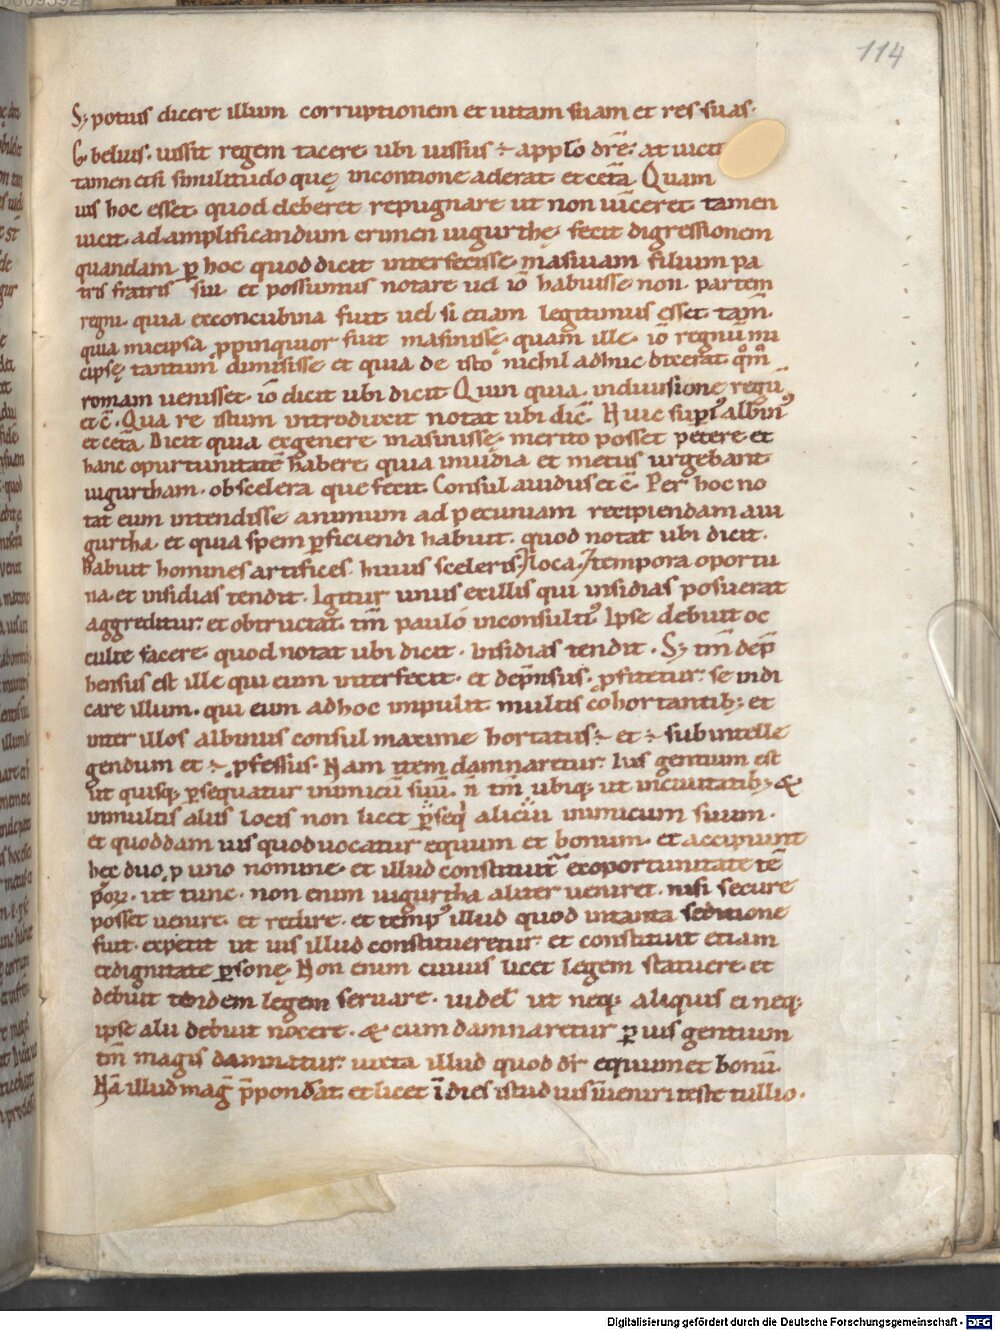 114
S; potius dicere illum corruptionem et uitam suam et res suas.
G. belius. iussit regem tacere. ubi iussus ÷ app̄lo dr̄e. at uicit
tamen etsi similitudo quę incontione aderat et cet̄a. Quam
uis hoc esset. quod deberet repugnare ut non uīceret. tamen
uicit. ad amplificandum crimen iugurthę fecit digressionem
quandam. ꝑ hoc quod dicit interfecisse. masiuam filium pa
tris fratris sui. et possumus notare uel iō habuisse non partem
regni. quia exconcubina fuit uel si etiam legitimus esset. tam̄
quia micipsa ꝓpinquior fuit masinissę. quam ille. iō regnū mi
cipsę tantum dimisisse et quia de isto nichil adhuc dixerat.
romam uenisset. iō dicit ubi dicit Quin quia. indiuisione regū
et c̄. Qua re istum introduxit notat ubi dic̄. Huic
et cet̄a. Dicit quia exgenere masinissę. merito posset petere et
hanc opurtunitatē habere. quia inuidia et metus urgebant
iugurtham. obscelera que fecit. Consul auidus et c̄. Per hoc no
tat eum intendisse animum ad pecuniam recipiendam a iu
gurtha. et quia spem ꝑficiendi habuit. quod notat ubi dicit.
habuit homines artifices huius sceleris / loca / tempora oportu
na. et insidias tendit. Igitur unus exillis qui insidias posuerat
aggreditur. et obtructat. tm̄ paulo inconsultꝰ. Ipse debuit oc
culte facere. quod notat ubi dicit. insidias tendit. S; tm̄ dep̄
hensus est ille qui eum interfecit. et dep̄nsus. ꝓfitetur. se indi
care illum. qui eum adhoc impulit multis cohortantib; et
inter illos albinus consul maxime hortatus ÷ et ÷ subintelle
gendum et ÷ ꝓfessus. Nam item damnaretur. Ius gentium est
ut quisq; ꝑsequatur inimicū suū. n̄ tm̄ ubiq; ut inciuitatib; &
inmultis aliis locis non licet ꝑseqi aliciū inimicum suum.
et quoddam ius quod uocatur equum et bonum. et accipiunt
hęc duo ꝓ uno nomine. et illud constituit̄ exoportunitate tē
poꝝ. ut tunc. non enim iugurtha aliter ueniret. nisi secure
posset uenire. et redire. et tempꝰ illud quod intanta seditione
fuit. expetit ut ius illud constitueretur. et constituit etiam
exdignitate ꝑsonę. Non enim cuiuis licet legem statuere. et
debuit tendem legem seruare. uidel̄ ut neq; aliquis ei neq;
ipse alii debuit nocere. & cum damnaretur ꝑ ius gentium
tm̄ magis damnatur. iuxta illud quod dr̄ equum et bonū.
Nā illud mag̅ p̄pond̄at. et licet īdies istud ius īueniri teste tullio.
Digitalisierung gefördert durch die Deutsche Forschungsgemeinschaft - DFG